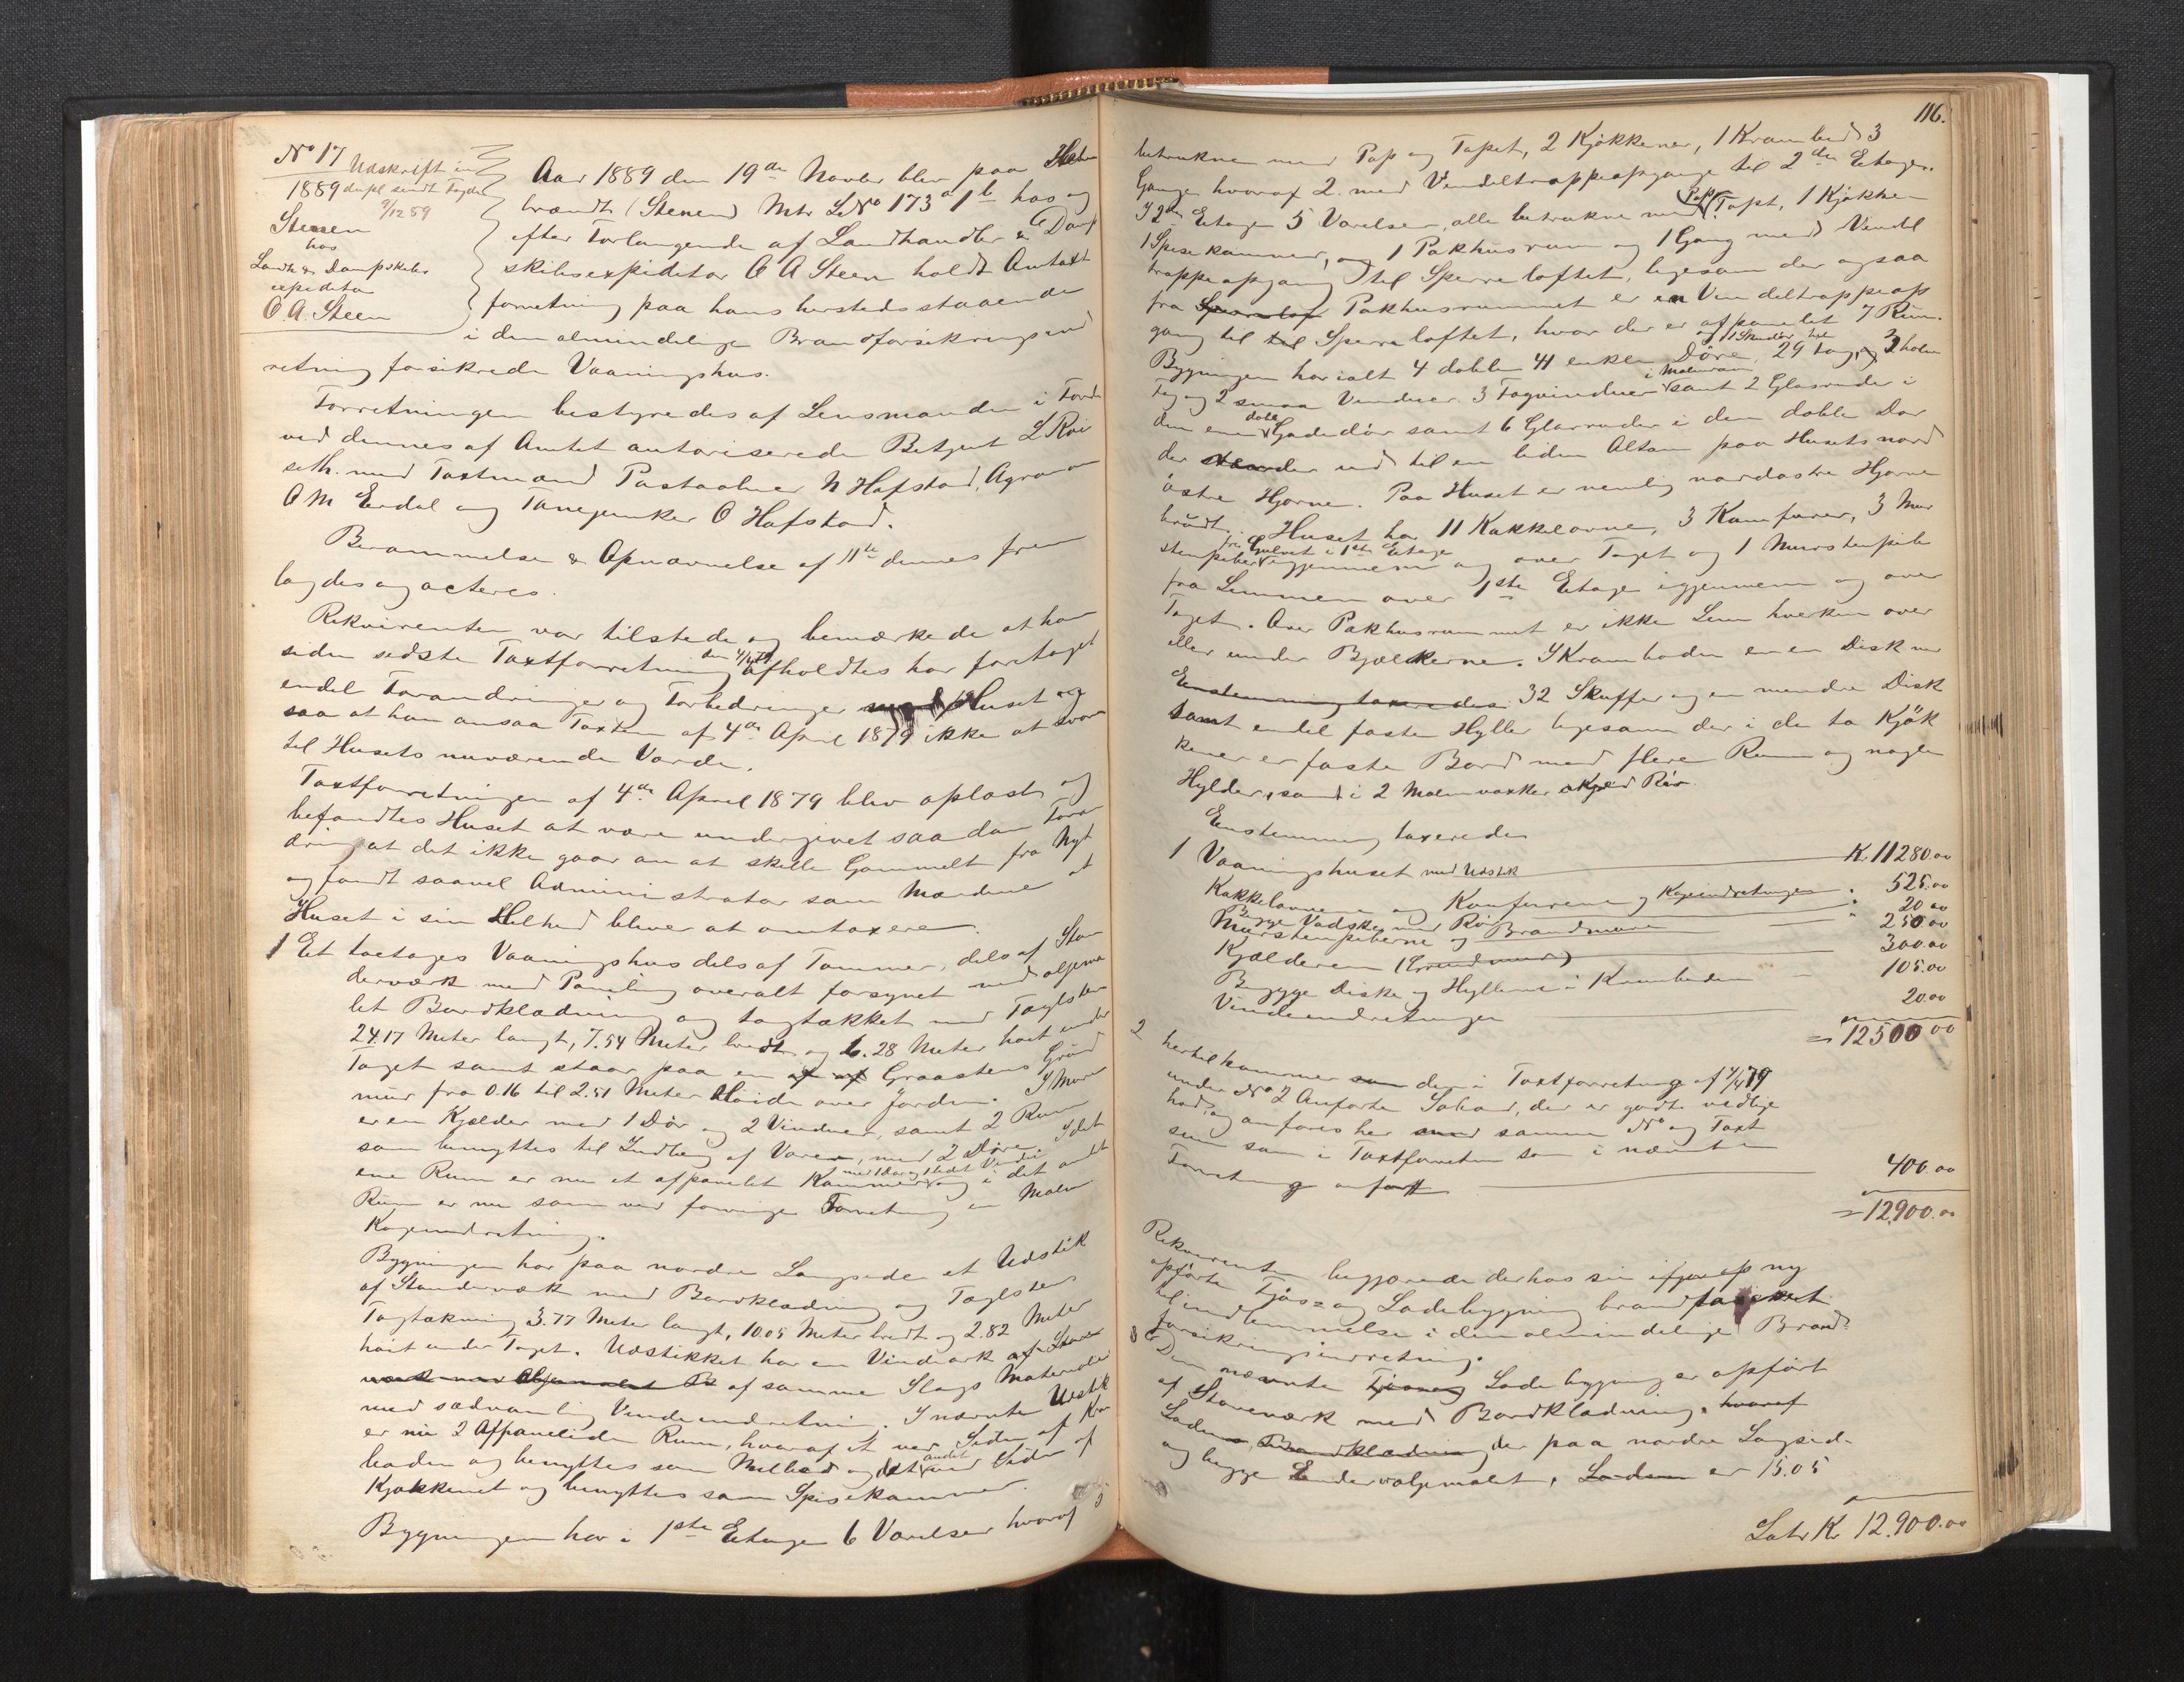 No 17 Udskrift in
1889 dupl sendt Fogden
9/12 89
Steenen
hos
Landh & Dampskibs
expeditør
O. A. Steen
Aar 1889 den 19de Novbr blev paa
brændt (Stenen) Mtr LNo 173 a 1 b hos og
efter Forlangende af Landhandler & Damp
skibsexpeditør O A Steen holdt Omtaxt
forretning paa hans hersteds staaende
i den almindelige Brandforsikringsind
retning forsikrede Vaaningshus.
Forretningen bestyredes af Lensmanden i Førde
ved dennes af Amtet autoriserede Betjent L Roi
seth. med Taxtmænd Postaabner N Hafstad, Agronom
O M Erdal og Fanejunker O Hafstad.
Berammelse & Opnævnelse af 11te dennes frem
lagdes og acteres.
Rekvirenten var tilstede og bemærkede at han
siden sidste Taxtforretning den 4/4 79 afholdtes har foretaget
endel Forandringer og Forbedringer med Huset og
saa at han ansaa Taxten af 4de April 1879 ikke at svare
til Husets nuværende Værdi.
Taxtforretningen af 4de April 1879 blev oplæst og
befandtes Huset at være undergivet saadan Foran
dring at det ikke gaar an at skille Gammelt fra Nyt
og fandt saavel Administrator som Mændene at
Huset i sin Helhed bliver at omtaxere.
1 Et toetages Vaaningshus dels af Tømmer, dels af Stan
derværk med Paneling overalt forsynet med oljema
let Bordklædning og tagtækket med Taglsten
24.17 Meter langt, 7.54 Meter bredt og 6.28 Meter høit under
Taget samt staar paa en af af Graastens Grund
mur fra 0.16 til 2.51 Meter Høide over Jorden. I Muren
er en Kjelder med 1 Dør og 2 Vinduer, samt 2 Rum
som benyttes til Indlæg af Varer, med 2 Døre. I det
ene Rum er nu et afpanelet Kammer med 1 Dør og 1 lidet Vindu og i det andet
Rum er nu som ved forrige Forretning en Malm
Kogeindretning.
Bygningen har paa nordre Langside et Udstik
af Standerværk med Bordklædning og Taglsten
Tagtækning 3.77 Meter langt, 10.05 Meter bredt og 2.82 Meter
høit under Taget. Udstikket har en Vindark af Stander
værk med Oljemalet B af samme Slags Materialier
med sædvanlig Vindeindretning. I nævnte Udstik
er nu 2 Afpanelede Rum, hvoraf et ved Siden af Kram
boden og benyttes som Melbod og det andet ved Siden af
Kjøkkenet og benyttes som Spisekammer.
Bygningen har i 1ste Etage 6 Værelser hvoraf 5
116.
betrukne med Pap og Tapet, 2 Kjøkkener, 1 Krambod 3
Gange hvoraf 2 med Vindeltrappeopgange til 2den Etage.
I 2den Etage 5 Værelser, alle betrukne med Pap & Tapet, 1 Kjøkken
1 Spisekammer, og 1 Pakhusrum og 1 Gang med Vindel
trappeopgang til Sperreloftet, ligesom der ogsaa
fra Sperreloft Pakhusrummet er en Vindeltrappeop
gang til til Sperreloftet, hvor der er afpanelet 7 Rum.
Bygningen har ialt 4 doble 41 enkle Døre, og 1 Skudør, 29 fag, og 2 halve
Fag og 2 smaa Vinduer 3 Tagvinduer i Malmram samt 2 Glasruder i
den ene doble Gadedør samt 6 Glasruder i den doble Dør
der staar der ud til en liden Altan paa Husets nord
østre Hjørne. Paa Huset er nemlig nordøstre Hjørne
brudt. Huset har 11 Kakkelovne, 3 Komfurer, 3 Mur
stenpiber fra Gulvet i 1ste Etage igjennem og over Taget og 1 Murstenpibe
fra Lemmen over 1ste Etage igjennem og over
Taget. Over Pakhusrummet er ikke Lem hverken over
eller under Bjælkerne. I Kramboden er en Disk med
Enstemmig taxeredes 32 Skuffer og en mindre Disk
samt endel faste Hyller ligesom der i de to Kjøk
kener er faste Bord med flere Rum og nogle
Hylder, samt i 2 Malmvasker Rør.
Enstemmig taxeredes
1 Vaaningshuset med Udstik K. 11280.00
Kakkelovnene og Komfurerne og Kogeindretningen " 525.00
Begge Vadske med Rør " 20.00
Murstenpiberne og Brandmure " 250.00
Kjælderen (Grundmur) 300.00
Beggge Diske og Hyllerne i Kramboden 105.00
Vindeindretningen 20.00
= 12500 00
2 hertil kommer som den i Taxtforretning af 4/4 79
under No 2 Anførte Søbod, der er godt vedlige
hod, og anføres her med samme No og Taxt
sum som i Taxtforretn som i nævnte
Forretning anført 400.00
= 12,900.00
Rekvirenten begjærede derhos sin ifjor op ny
opførte Fjøs= og Ladebygning brandtaxeret
til indlemmelse i den almindelige Brand=
forsikringsindretning.
3 Den nævnte Fjøs og Ladebygning er opført
af Staveværk med Bordklædning, hvoraf
Laden, Bordklædning der paa nordre Langside
og begge Ender er oljemalt, Laden er 15.05
Latr Kr 12.900.00